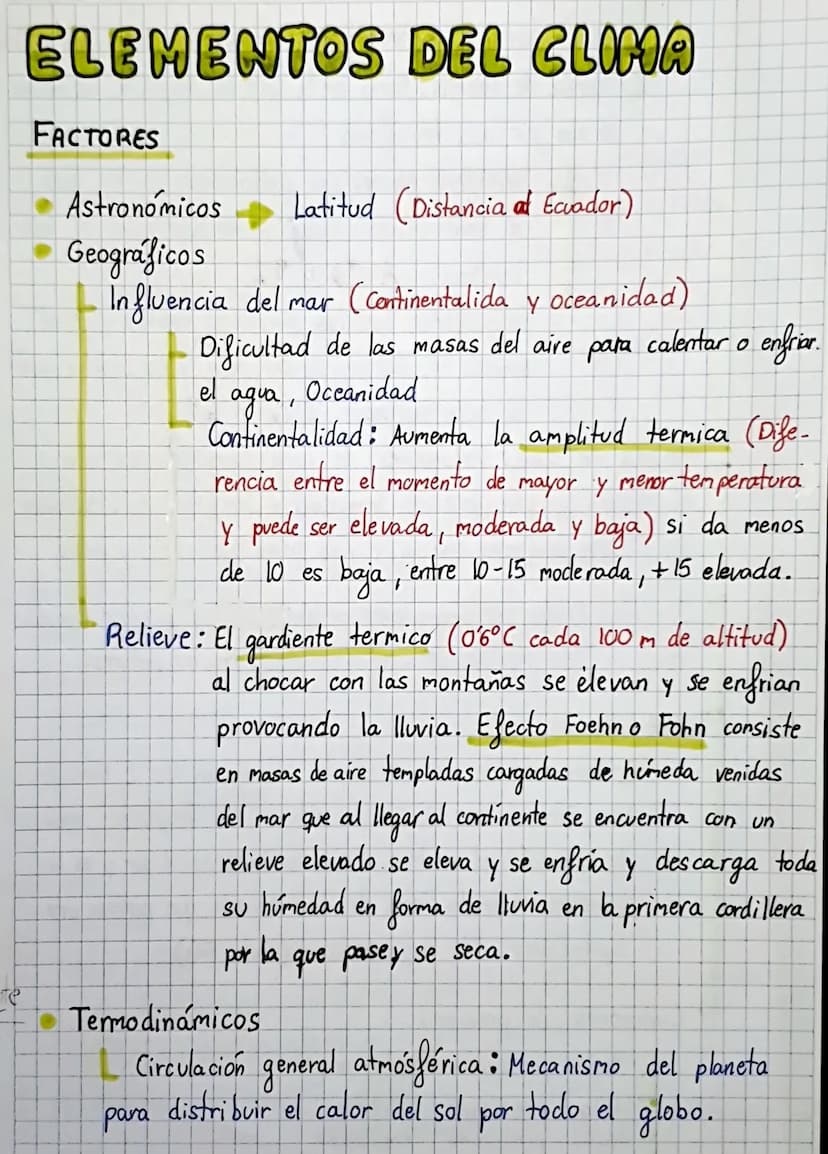 ELEMENTOS DEL CLIMA
FACTORES
Astronómicos → Latitud (Distancia al Ecuador)
Geográficos
Influencia del mar (Continentalida y oceanidad)
Dificultad de las masas del aire para calentar o enfriar.
el agua, Oceanidad
Continentalidad: Aumenta la amplitud termica (Dife-
rencia entre el momento de mayor y menor temperatura
y puede ser elevada, moderada y baja) si da menos
de 10 es baja, entre 10-15 moderada, +15 elevada.
Relieve: El gardiente termico (0'6°C cada 100 m de altitud)
al chocar con las montañas se elevan y se enfrian
provocando la lluvia. Efecto Foehn o Fohn consiste
en masas de aire templadas cargadas de húmeda venidas
del mar que al llegar al continente se encuentra con un
relieve elevado se eleva y se enfría y descarga toda
su húmedad en forma de lluvia en la primera cordillera
por la que pase y se seca.
Termodinámicos
Circulación general atmósférica: Mecanismo del planeta
para distribuir el calor del sol por todo el globo.